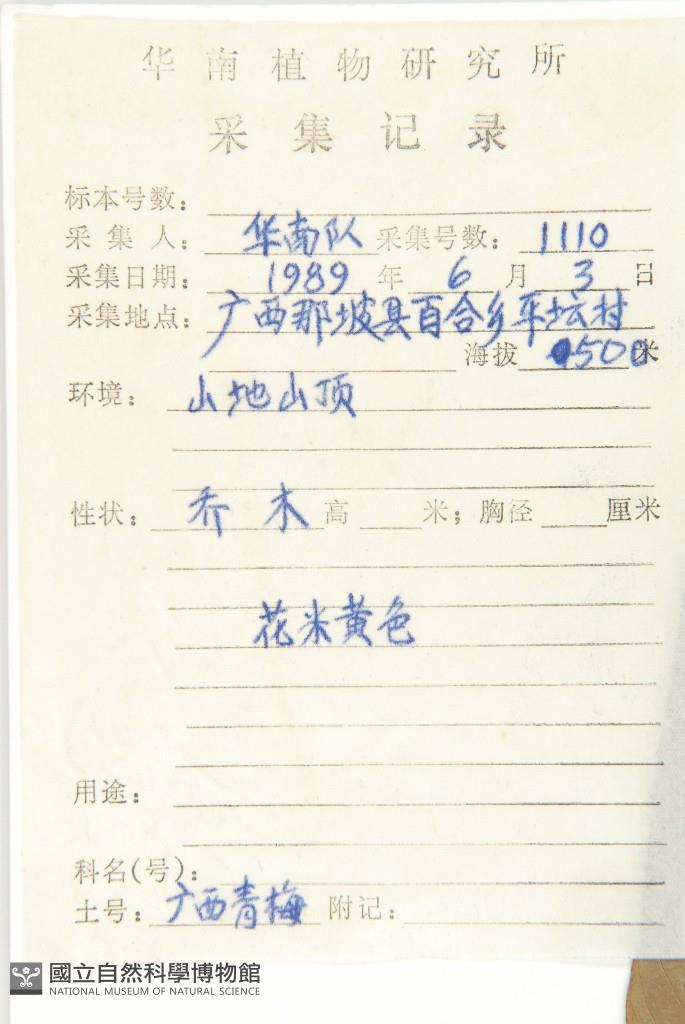 华南植物研究所
采集记录
标本号数:
采集人: 华南队 采集号数: 1110
采集日期: 1989 年 6 月 3 日
采集地点: 广西那坡县百合乡平坛村
海拔 500 米
环境: 山地山顶
性状: 乔木 高 米; 胸径 厘米
花米黄色
用途:
科名(号):
土号: 广西青梅 附记:
國立自然科學博物館
NATIONAL MUSEUM OF NATURAL SCIENCE